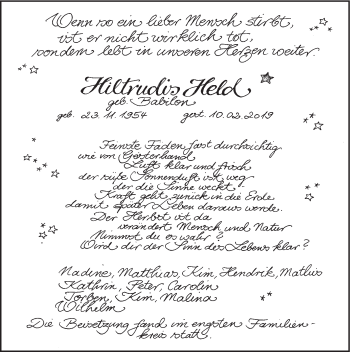 Wenn wo ein lieber Mensch stirbt,
ist er nicht wirklich tot,
sondern lebt in unseren Herzen weiter.
Hiltrudis Held
geb. Babilon
geb. 23.11.1954 gest. 10.02.2019
Feinste Fäden fast durchsichtig
wie von Geisterhand
Luft klar und frisch
der süße Sonnenduft ist weg
der die Sinne weckt
Kraft geht zurück in die Erde
damit später Leben daraus werde.
Der Herbst ist da
verändert Mensch und Natur
Nimmst du es wahr?
Wird dir der Sinn des Lebens klar?
Nadine, Matthias, Kim, Hendrik, Mathis
Kathrin, Peter, Carolin
Torben, Kim, Malina
Wilhelm
Die Beisetzung fand im engsten Familien-
kreis statt.